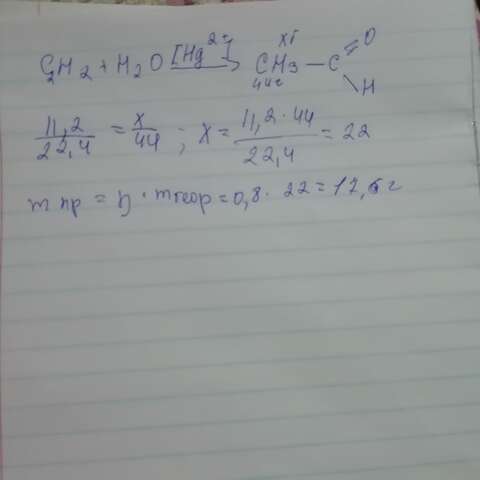 C₂H₂ + H₂O [Hg²⁺] → CH₃ – C = O
хг
44г
H
11,2/22,4 = x/44 ; x = 11,2 · 44/22,4 = 22
m пр = η · m теор = 0,8 · 22 = 17,6 г